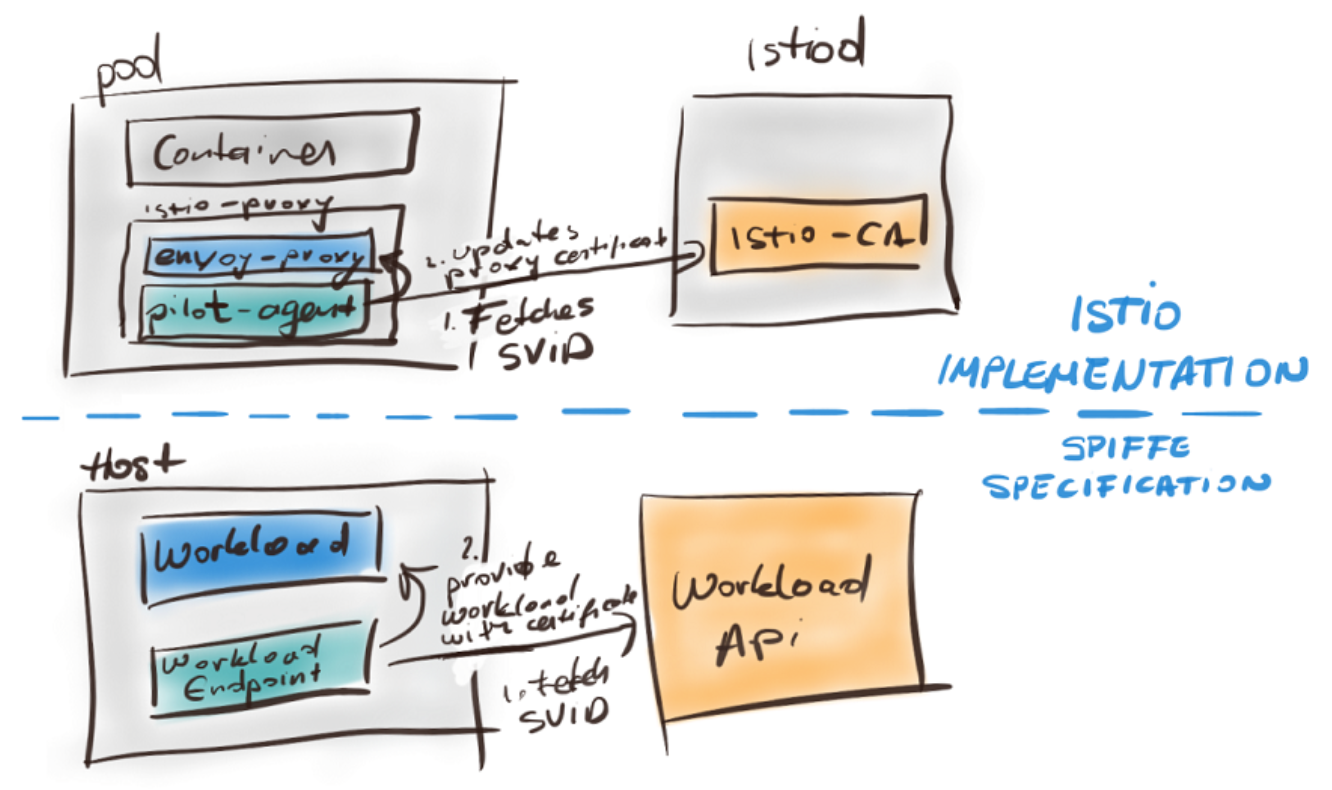 pod
istiod
Container
istio-proxy
envoy-proxy
pilot-agent
2. updates
proxy certificat
1. Fetches
SViD
istio-CA
ISTIO
IMPLEMENTATION
SPIFFE
SPECIFICATION
Host
Workload
Workload
Endpoint
2.
provide
workload
with certificate
1. Fetch
SVID
Workload
Api